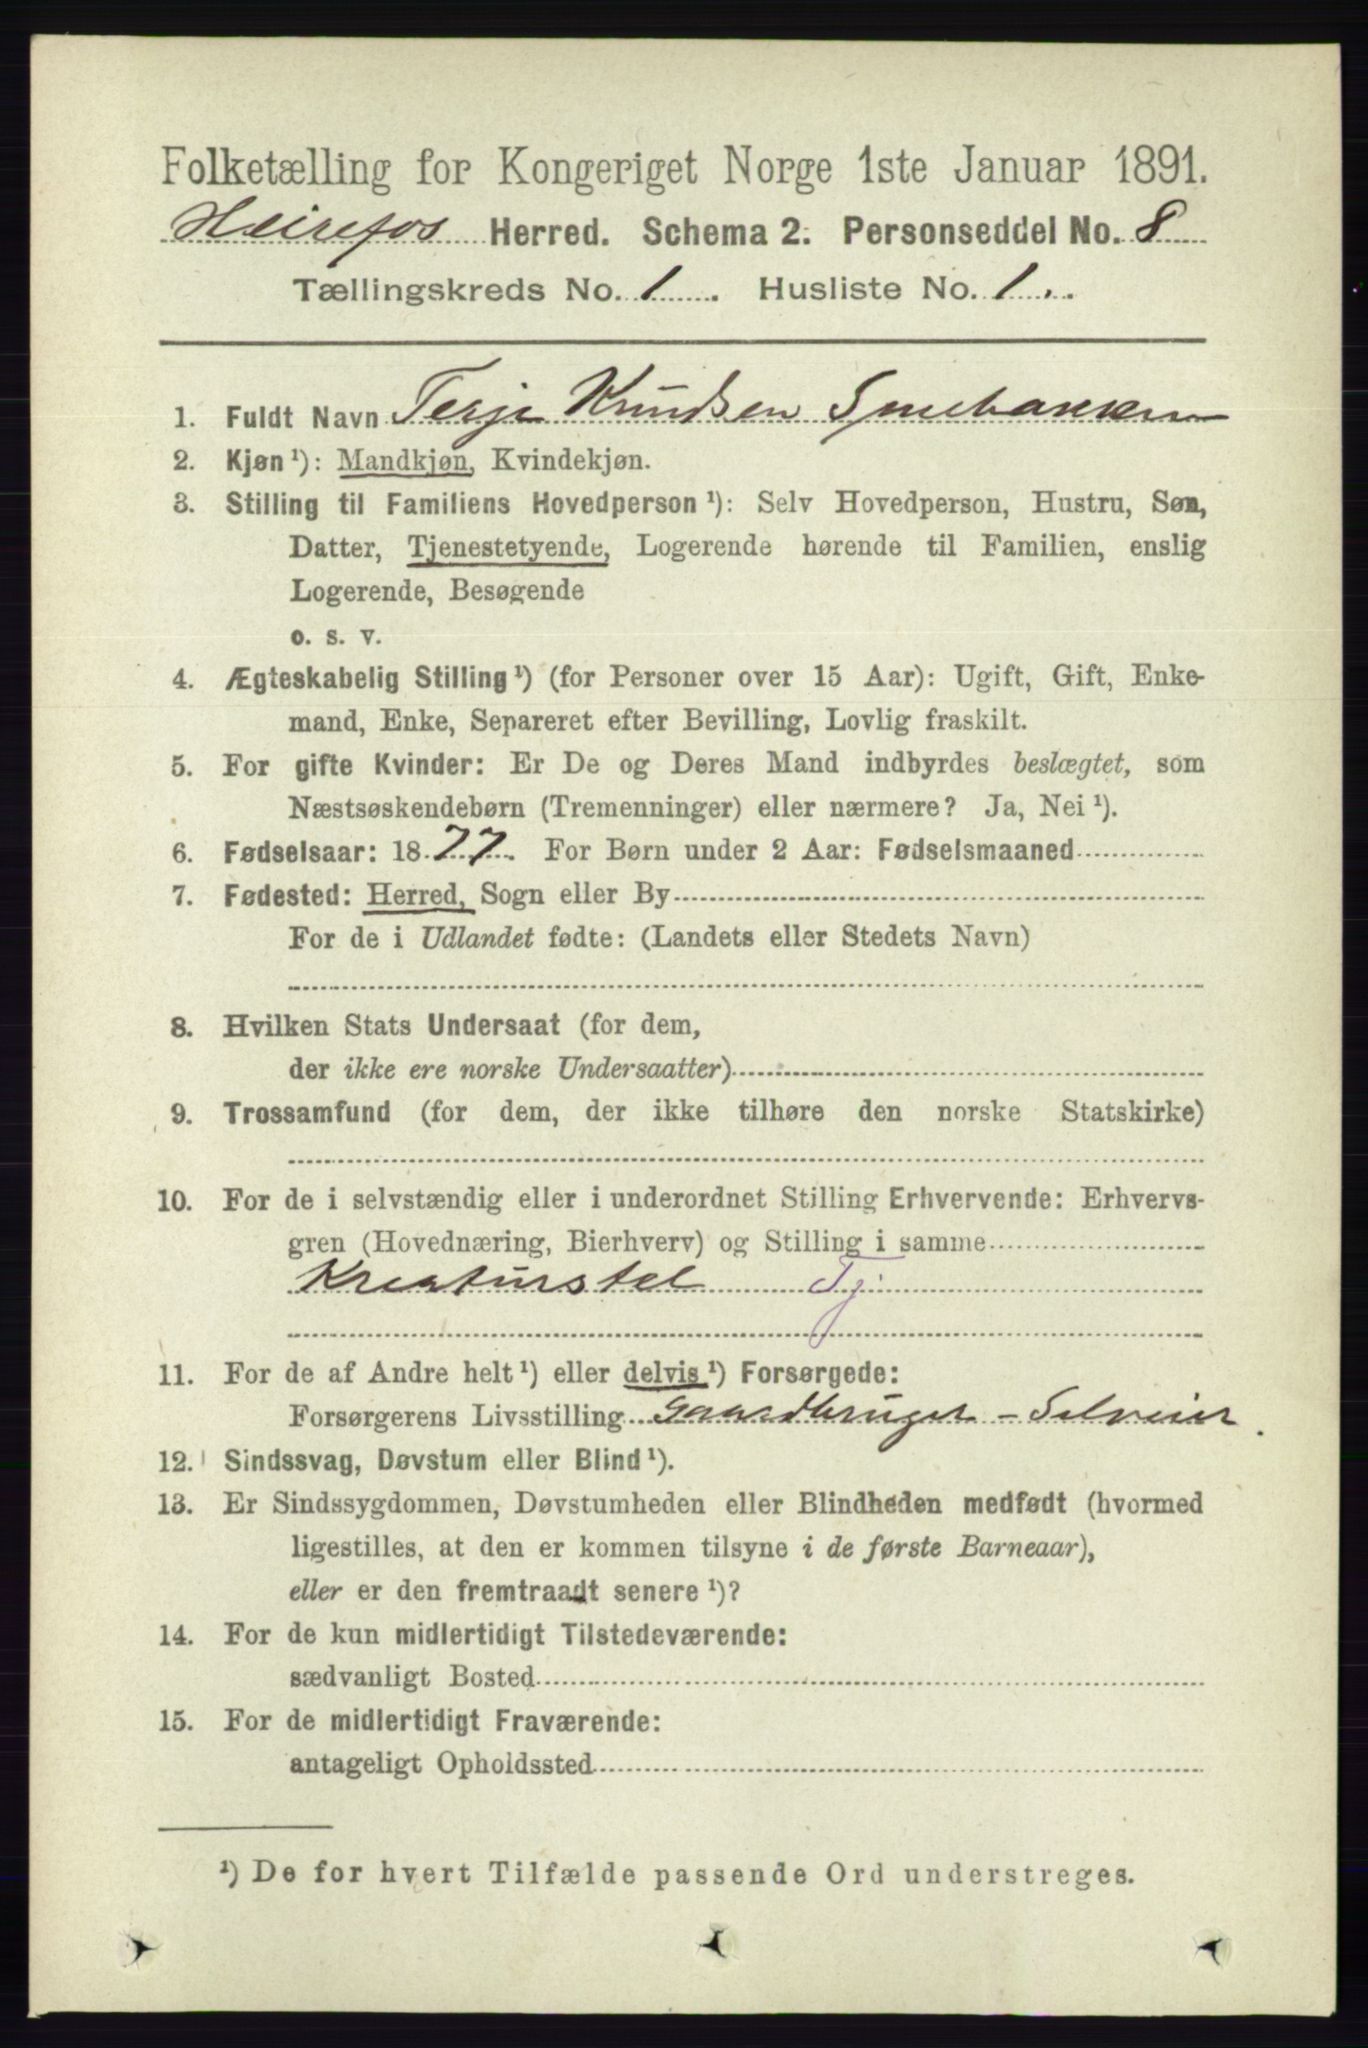 Folketælling for Kongeriget Norge 1ste Januar 1891.
Heirefos Herred. Schema 2. Personseddel No. 8
Tællingskreds No. 1. Husliste No. 1.
1. Fuldt Navn Terje Knudsen Smebakken
2. Kjøn ¹): Mandkjøn, Kvindekjøn.
3. Stilling til Familiens Hovedperson ¹): Selv Hovedperson, Hustru, Søn,
Datter, Tjenestetyende, Logerende hørende til Familien, enslig
Logerende, Besøgende
o. s. v.
4. Ægteskabelig Stilling ¹) (for Personer over 15 Aar): Ugift, Gift, Enke-
mand, Enke, Separeret efter Bevilling, Lovlig fraskilt.
5. For gifte Kvinder: Er De og Deres Mand indbyrdes beslægtet, som
Næstsøskendebørn (Tremenninger) eller nærmere? Ja, Nei ¹).
6. Fødselsaar: 1877. For Børn under 2 Aar: Fødselsmaaned
7. Fødested: Herred, Sogn eller By
For de i Udlandet fødte: (Landets eller Stedets Navn)
8. Hvilken Stats Undersaat (for dem,
der ikke ere norske Undersaatter)
9. Trossamfund (for dem, der ikke tilhøre den norske Statskirke)
10. For de i selvstændig eller i underordnet Stilling Erhvervende: Erhvervs-
gren (Hovednæring, Bierhverv) og Stilling i samme
Kreaturstel Tj.
11. For de af Andre helt ¹) eller delvis ¹) Forsørgede:
Forsørgerens Livsstilling Gaardbruger - Selveier.
12. Sindssvag, Døvstum eller Blind ¹).
13. Er Sindssygdommen, Døvstumheden eller Blindheden medfødt (hvormed
ligestilles, at den er kommen tilsyne i de første Barneaar),
eller er den fremtraadt senere ¹)?
14. For de kun midlertidigt Tilstedeværende:
sædvanligt Bosted
15. For de midlertidigt Fraværende:
antageligt Opholdssted
¹) De for hvert Tilfælde passende Ord understreges.